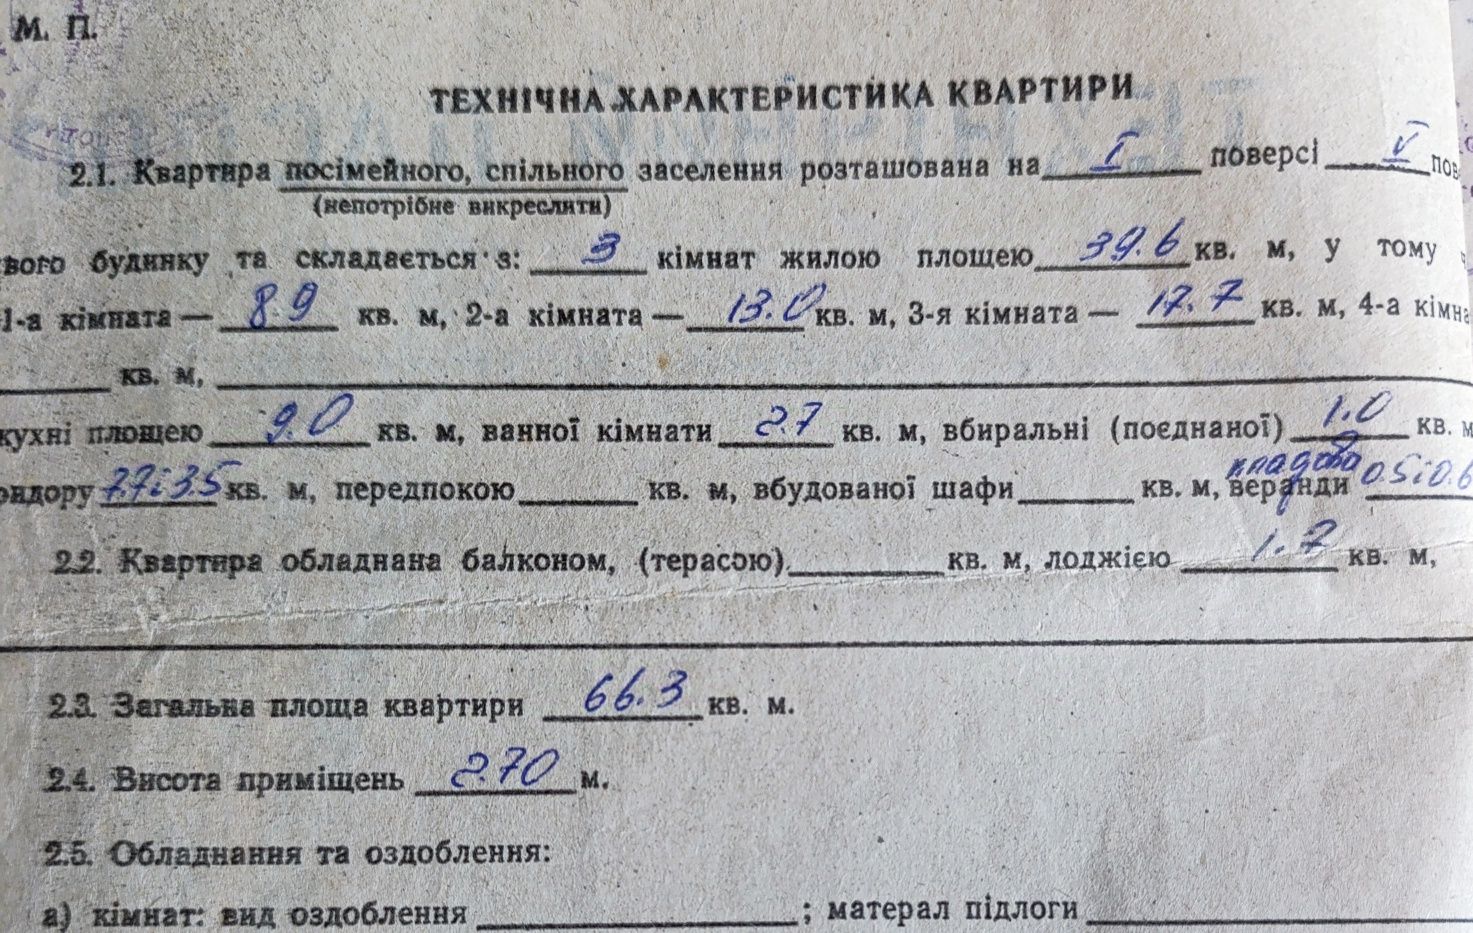 М. П.
ТЕХНІЧНА ХАРАКТЕРИСТИКА КВАРТИРИ
2.1. Квартира посімейного, спільного заселення розташована на I поверсі V пов
(непотрібне викреслити)
вого будинку та складається з: 3 кімнат жилою площею 39.6 кв. м, у тому
1-а кімната — 8.9 кв. м, 2-а кімната — 13.0 кв. м, 3-я кімната — 17.7 кв. м, 4-а кімна
кв. м,
кухні площею 9.0 кв. м, ванної кімнати 2.7 кв. м, вбиральні (поєднаної) 1.0 кв. м
ридору 7.7 і 3.5 кв. м, передпокою кв. м, вбудованої шафи кв. м, веранди кладова 0.5 і 0.6
2.2. Квартира обладнана балконом, (терасою) кв. м, лоджією 1.7 кв. м,
2.3. Загальна площа квартири 66.3 кв. м.
2.4. Висота приміщень 2.70 м.
2.5. Обладнання та оздоблення:
а) кімнат: вид оздоблення ; матерал підлоги